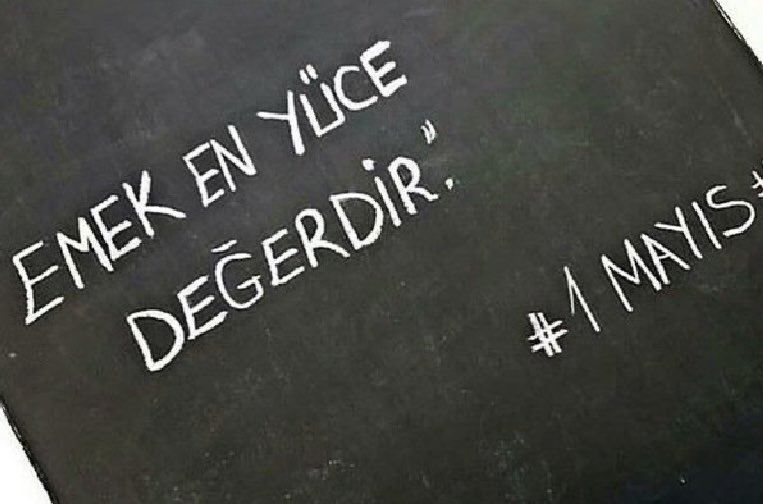 EMEK EN YÜCE
DEĞERDİR."
#1 MAYIS